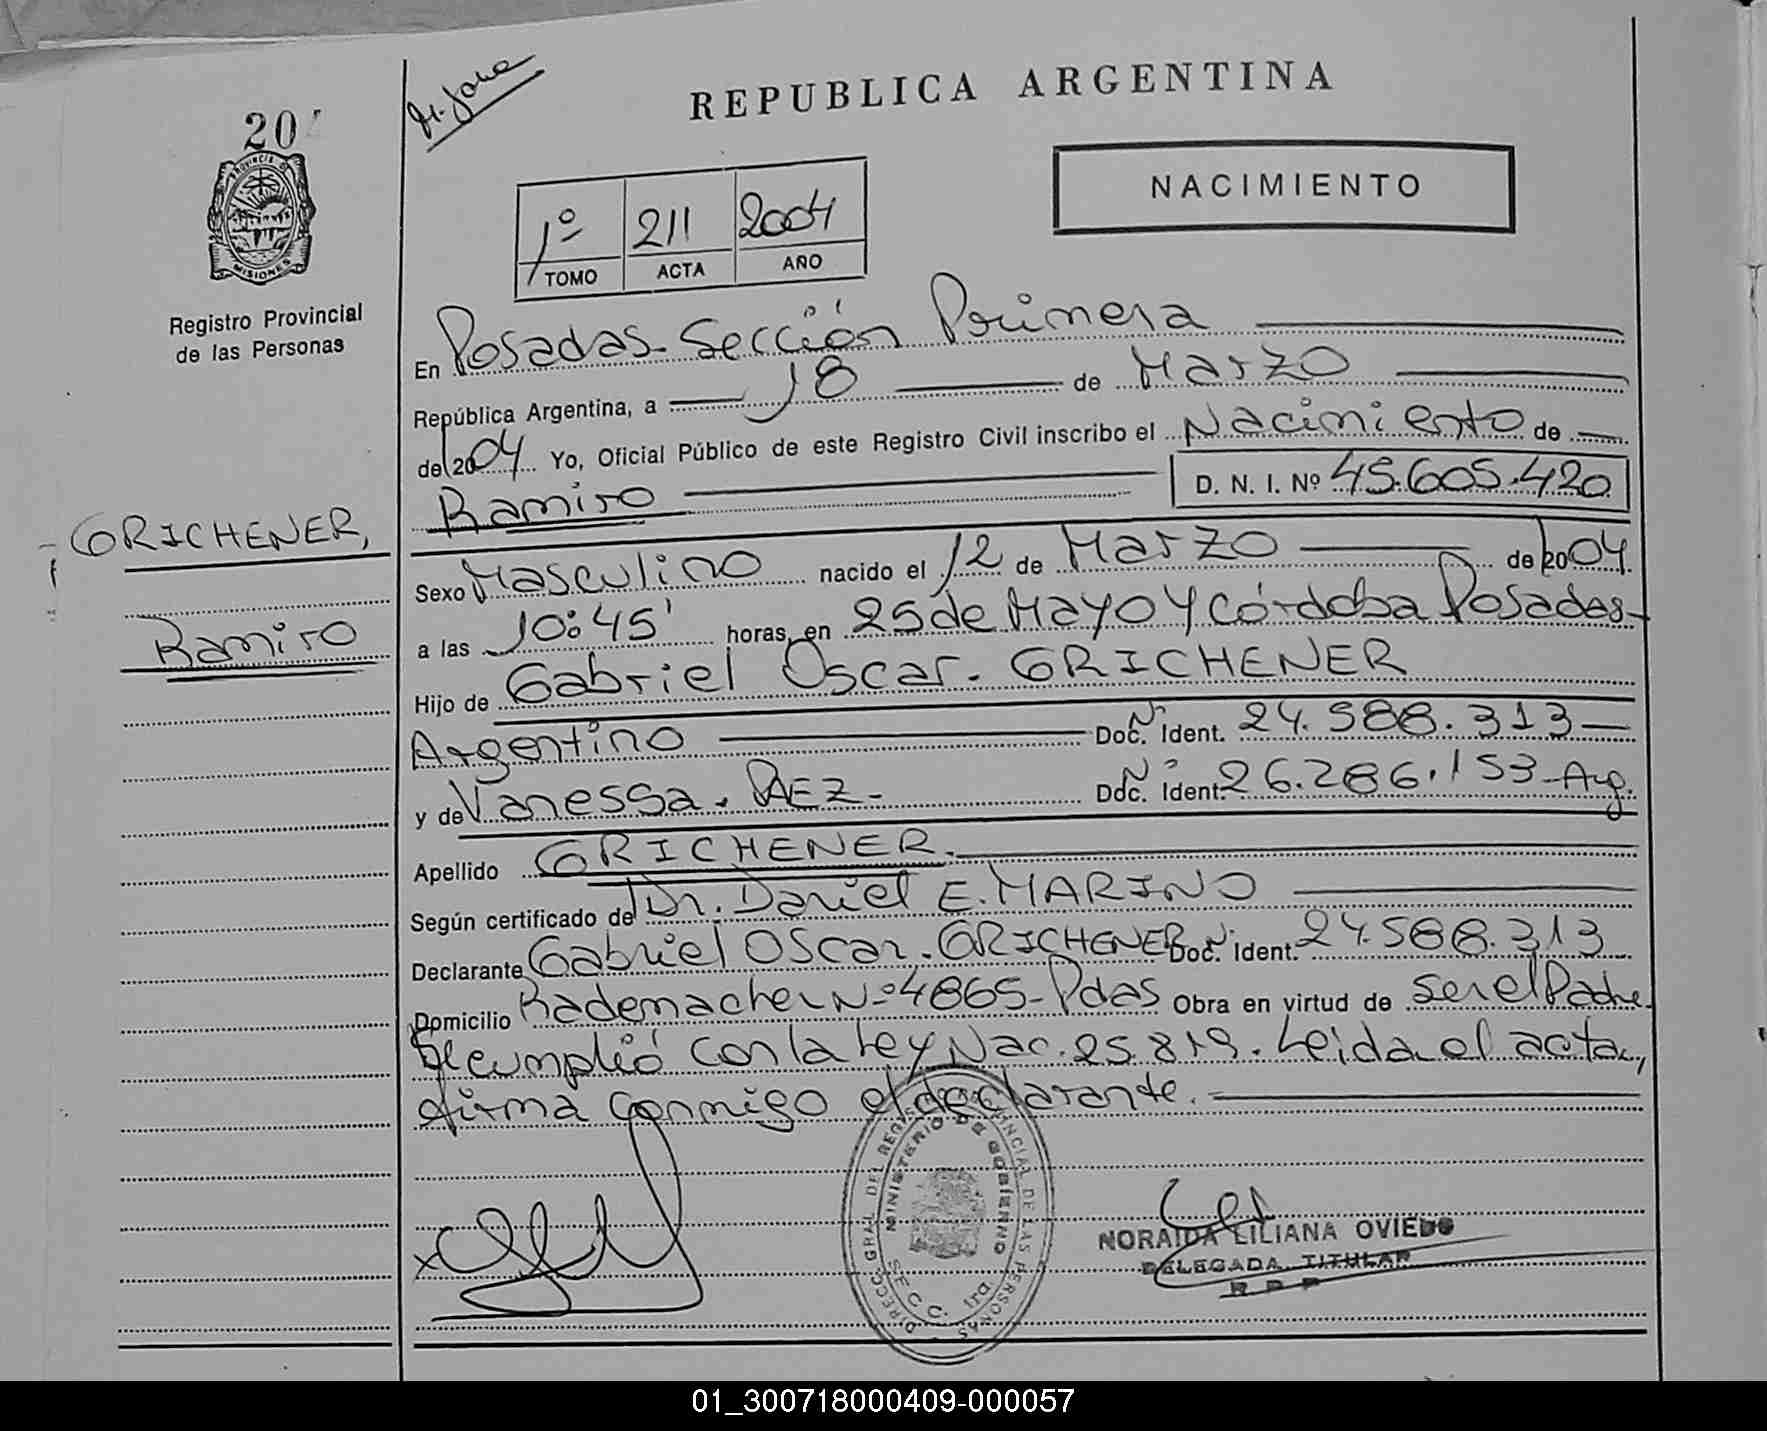 REPUBLICA ARGENTINA
20
PROVINCIA DE
MISIONES
Registro Provincial
de las Personas
NACIMIENTO
1º 211 2004
TOMO ACTA AÑO
En Posadas - Sección Primera
República Argentina, a 18 de Marzo
de 2004 Yo, Oficial Público de este Registro Civil inscribo el Nacimiento de
Ramiro D. N. I. Nº 45.605.420
GRICHENER,
Ramiro
Sexo Masculino nacido el 12 de Marzo de 2004
a las 10:45' horas, en 25 de Mayo y Córdoba Posadas-
Hijo de Gabriel Oscar. GRICHENER
Argentino Doc. Nº Ident. 24.588.313
y de Vanessa. PAEZ- Doc. Nº Ident. 26.286.153-Arg.
Apellido GRICHENER.
Según certificado de Dr. Daniel E. MARINO
Declarante Gabriel Oscar. GRICHENER Doc. Nº Ident. 24.588.313
Domicilio Rademacher Nº 4865- Pdas Obra en virtud de ser el Padre.
Se cumplió con la Ley Nac. 25.819. Leida el acta,
firma conmigo el declarante.
DIRECC. GRAL DEL REGISTRO PROVINCIAL DE LAS PERSONAS
MINISTERIO DE GOBIERNO
SECC. 1ra.
NORAIDA LILIANA OVIEDO
DELEGADA TITULAR
R. P. P
01_300718000409-000057